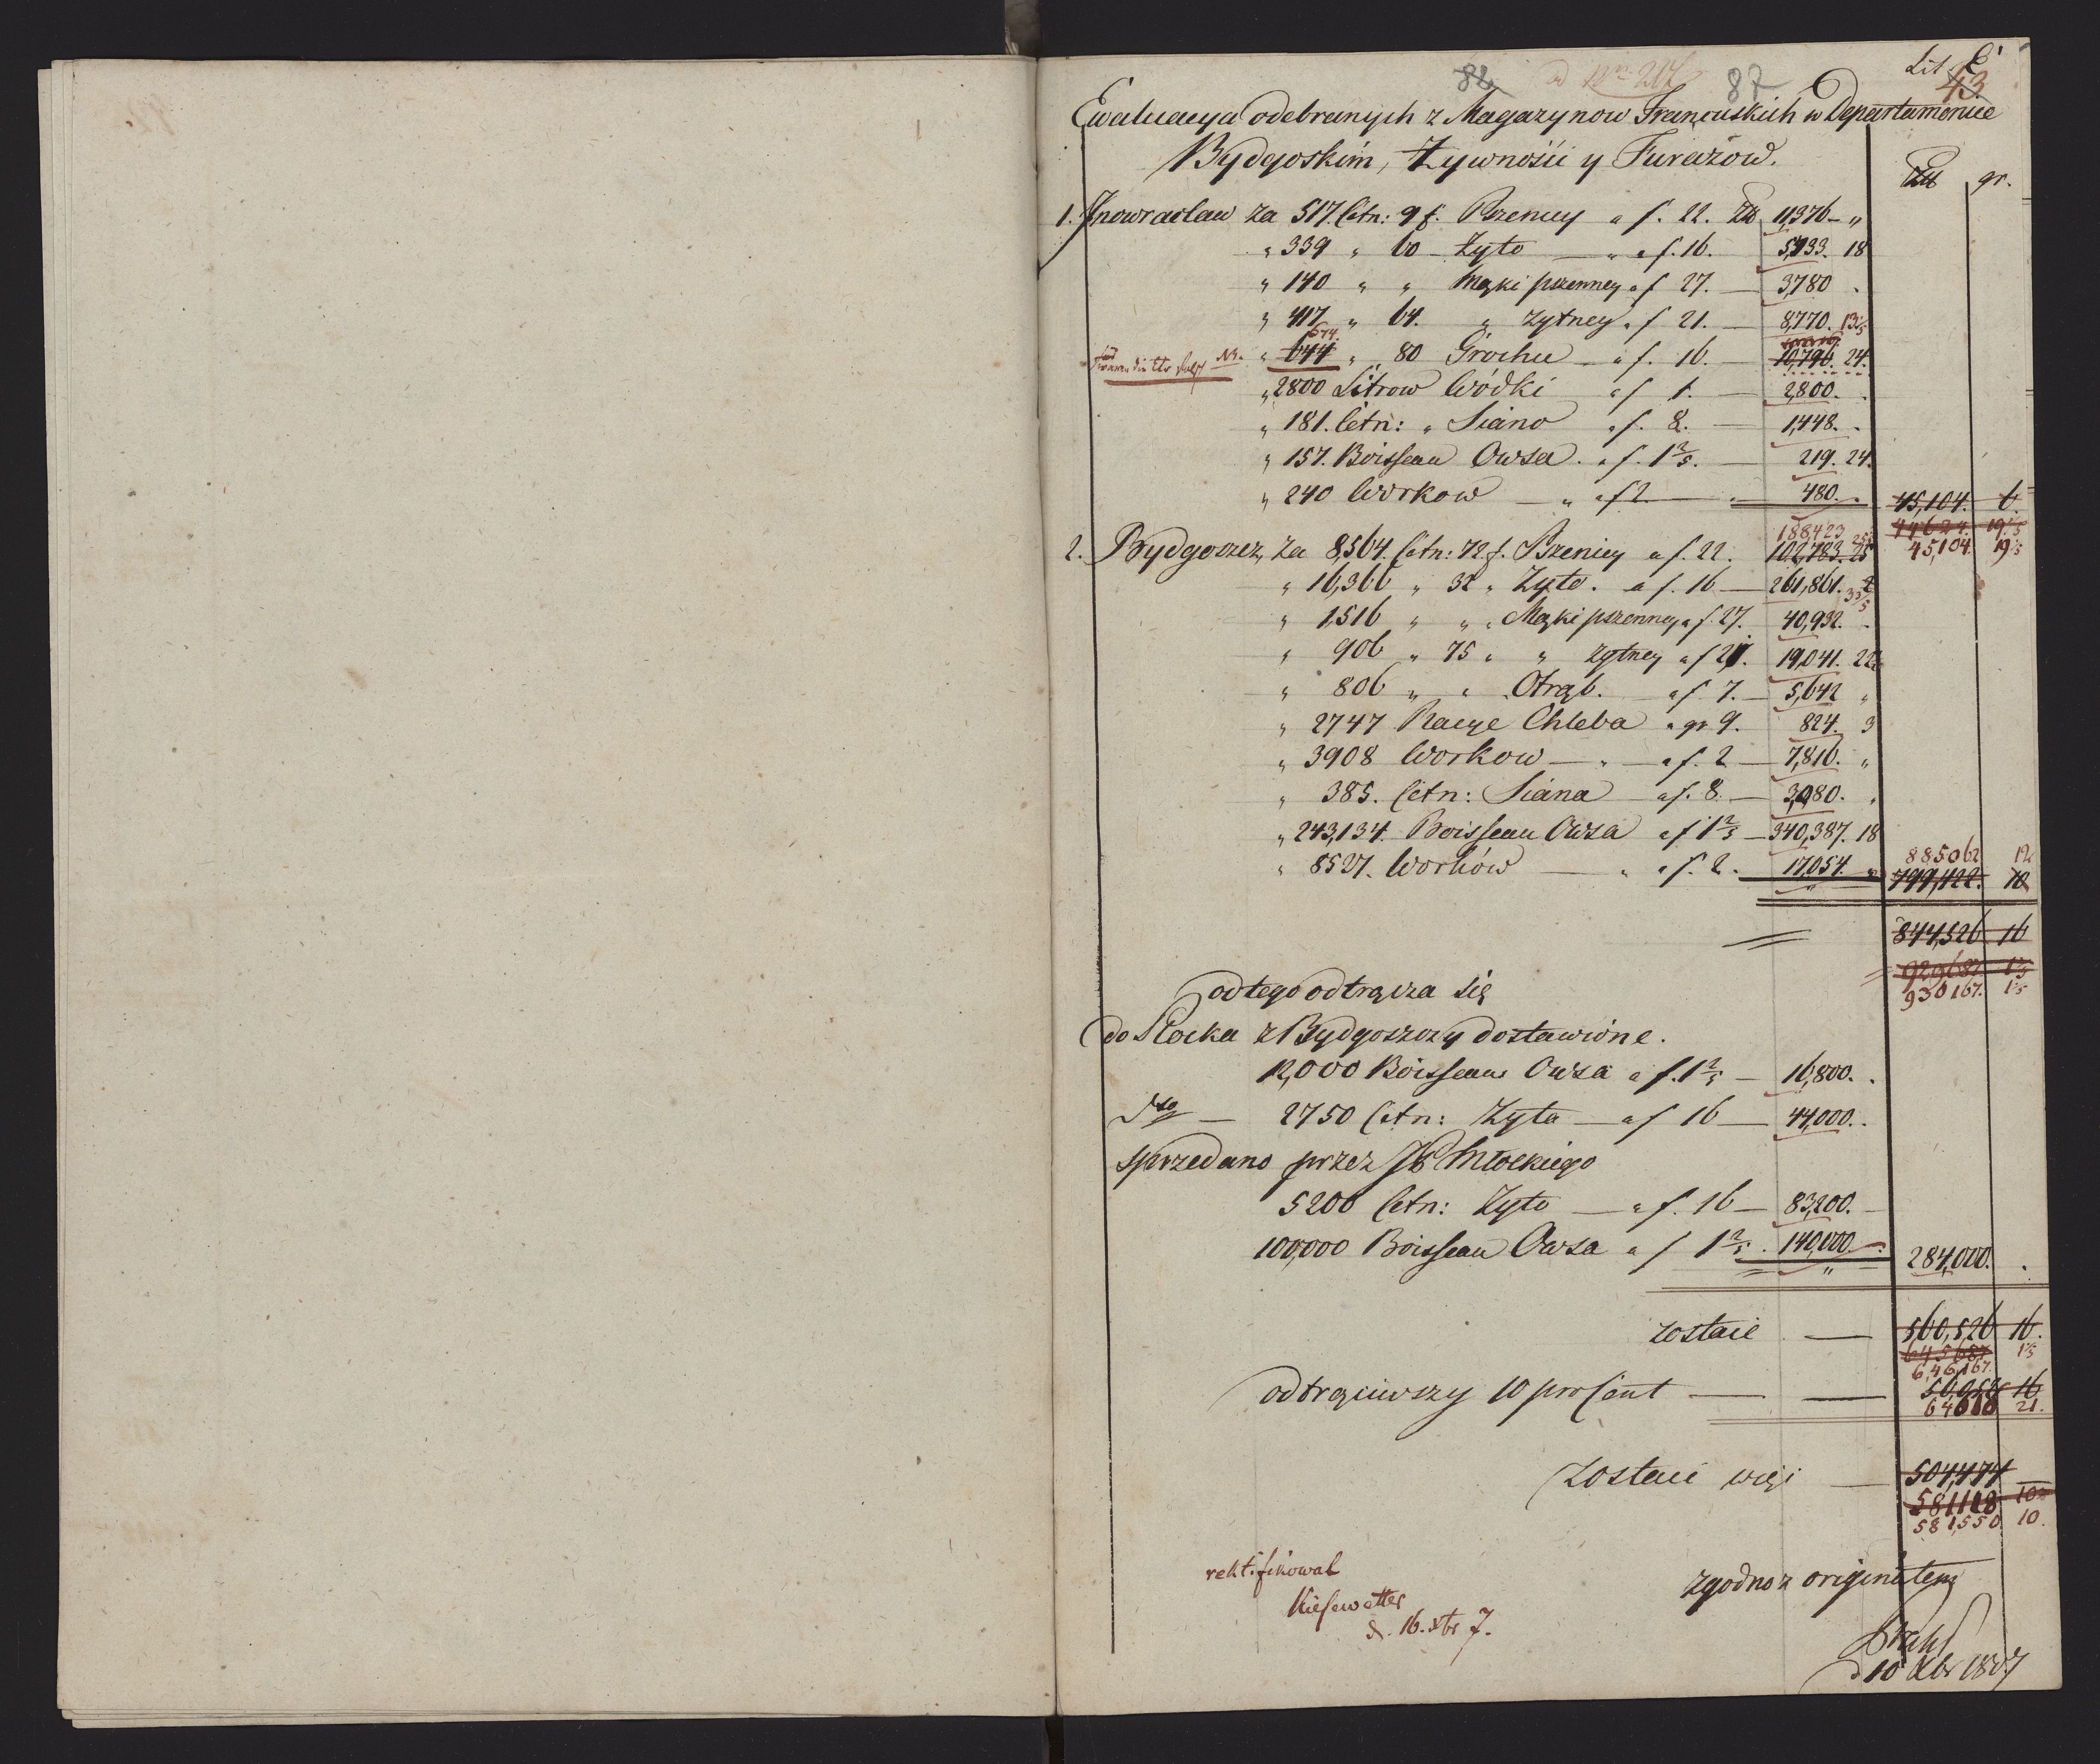 Lit C
82 87 43
Ewaluacya odebranych z Magazynow Francuskich w Departamencie
Bydgoskim, Żywnośći y Furażow.
Zł gr.
1. Jnowracław za 517. Cetn: 9 f. Pszenicy a f. 22. Zł 11,376 - "
" 339 " 60 - Żyto — " a f. 16. 5,433. 18
" 140 " " Mąki pszenney a f 27. — 3,780 .
" 417 " 64. " żytney a f 21. — 8,770. 13 1/5
674.
" 644 " 80 Grochu — a f. 16. — 10,796. 24.
" 2800 Litrow Wódki a f 1. — 2,800. .
" 181. Cetn: " Siano a f. 8. — 1,448. .
" 157. Boisseau Owsa. a f. 1 2/5. — 219. 24.
" 240 Workow — " a f 2 — 480. . 45,104. 6.
44624. 19 1/5
45,104. 19 1/5
188,423 25
2. Bydgoszcz, za 8,564. Cetn: 72 f. Pszenicy a f. 22. 102,783. 25
" 16,366 " 32 " Żyto. a f. 16 — 261,861. 3 3/5
" 1,516 " " " Mąki pszenney a f. 27. 40,932. -
" 906 " 75 " " żytney a f 21. 19,041. 22
" 806 " " Otrąb. a f 7. — 5,642 "
" 2747 Racye Chleba a gr 9. 824. 3
" 3908 Workow — " — a f. 2 — 7,816. "
" 385. Cetn: Siana — a f. 8. — 3,080. "
" 243,134. Boisseau Owsa a f 1 2/5 — 340,387. 18
885062 12
" 8527. Workòw — " a f. 2. 17,054. " 799,422. 10
844,526 16
929687. 1 1/5
930167. 1 1/5
od tego odtrącza się
do Płocka z Bydgoszczy dostawione.
12,000 Boisseau Owsa a f. 1 2/5 — 16,800. .
dto — 2750 Cetn: Żyta — a f 16 — 44,000. .
sprzedano przez JP Młockiego
5200 Cetn: Żyto — a f. 16 — 83,200. —
100,000 Boisseau Owsa a f 1 2/5 . 140,000. — 284,000. .
zostaie — 560,526 16.
645687. 1 1/5
646,167.
odtrąciwszy 10 pro Cent — — 56,052 16
64616 21.
Zostaie więc — 504,474 —
581118 10
581,550. 10.
rektifikowal
Kiesewetter
d. 16. xbr 7.
zgodno z originałem
d 10 Xbr 1807